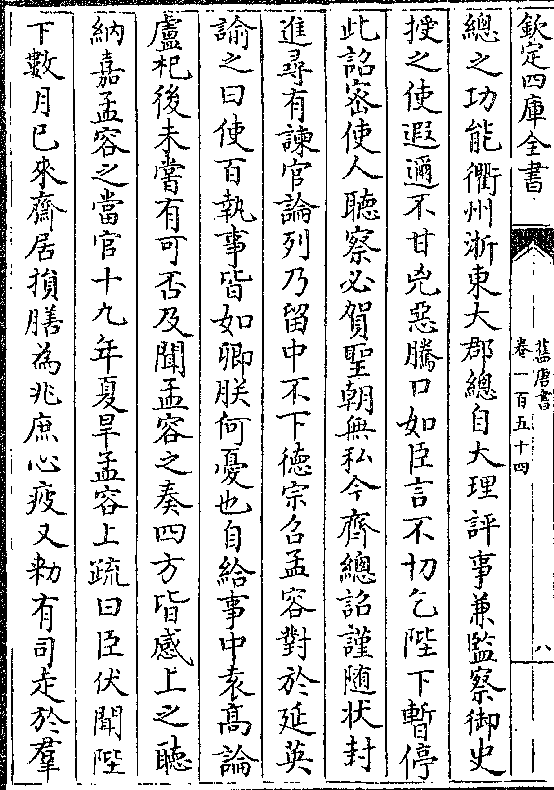 欽定四庫全書
舊唐書
卷一百五十四
八
總之功能衢州浙東大郡總自大理評事兼監察御史
授之使遐邇不甘兇惡騰口如臣言不切乞陛下暫停
此詔密使人聽察必賀聖朝無私今齊總詔謹随状封
進尋有諫官論列乃留中不下德宗召孟容對於延英
諭之曰使百執事皆如卿朕何憂也自給事中袁高論
盧杞後未嘗有可否及聞孟容之奏四方皆感上之聽
納嘉孟容之當官十九年夏旱孟容上疏曰臣伏聞陛
下數月已來齋居損膳為兆庶心疲又勑有司走於羣